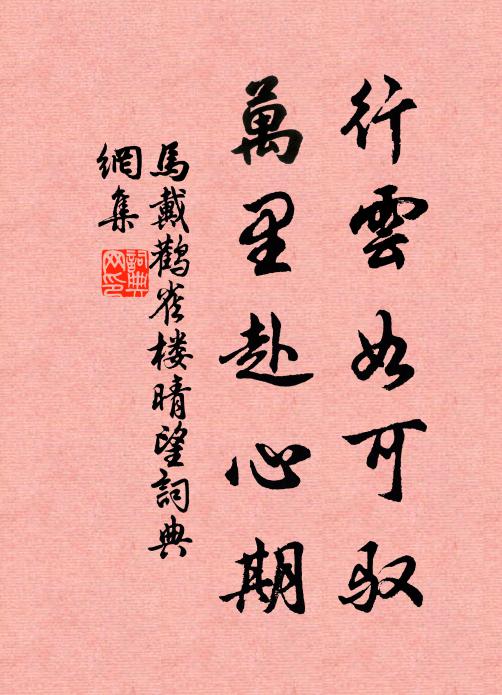 行雲如可驭
萬里赴心期
馬戴鹳雀楼晴望詞典
網集
詞典
网印